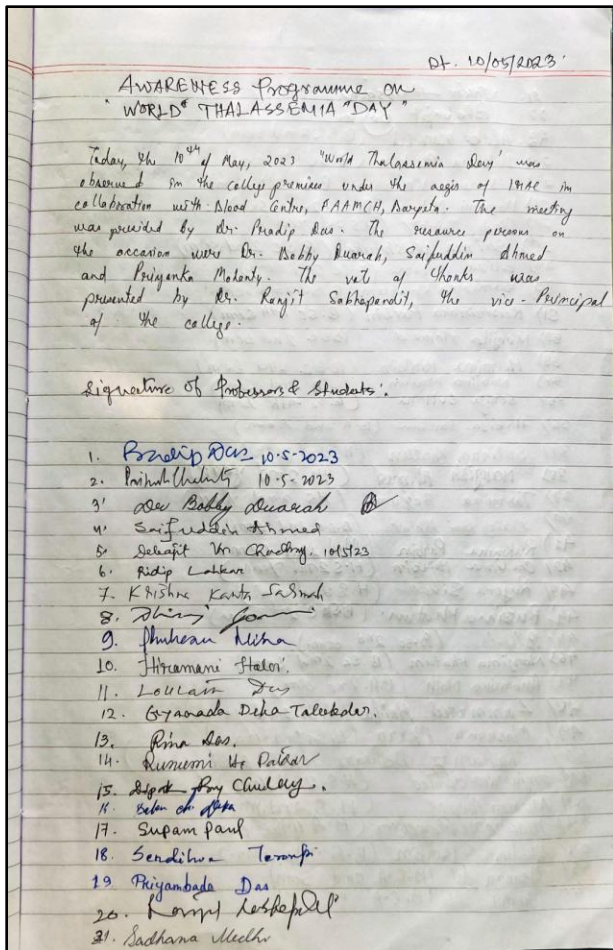 Dt. 10/05/2023
AWARENESS Programme on
"WORLD THALASSEMIA DAY"
Today, the 10th of May, 2023 'World Thalassemia Day' was
observed in the college premises under the aegis of IQAC in
collaboration with Blood Centre, FAAMCH, Barpeta. The meeting
was presided by Dr. Pradip Das. The resource persons on
the occasion were Dr. Bobby Duarah, Saifuddin Ahmed
and Priyanka Mohanty. The vot of thanks was
presented by Dr. Ranjit Sabhapandit, the vice-Principal
of the college.
Signature of Professors & Students:
1. Pradip Das 10-5-2023
2. 10-5-2023
3. Dr Bobby Duarah
4. Saifuddin Ahmed
5. Debajit Kr Choudhury. 10/5/23
6. Ridip Lahkar
7. Krishna Kanta Sarmah
8.
9. Misra
10. Hiramani
11. Das
12. Gyanada Deka Talukdar.
13. Rina Das.
14. Runumi Kr
15. Dipak Roy Choudhury.
16. Deka
17. Supam Paul
18.
19. Priyambada Das
20. Ranjit
21. Sadhana Medhi